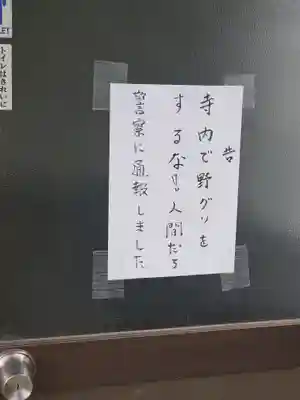 告
寺内で野グソを
するな!!人間だろ
警察に通報しました
トイレはきれいに